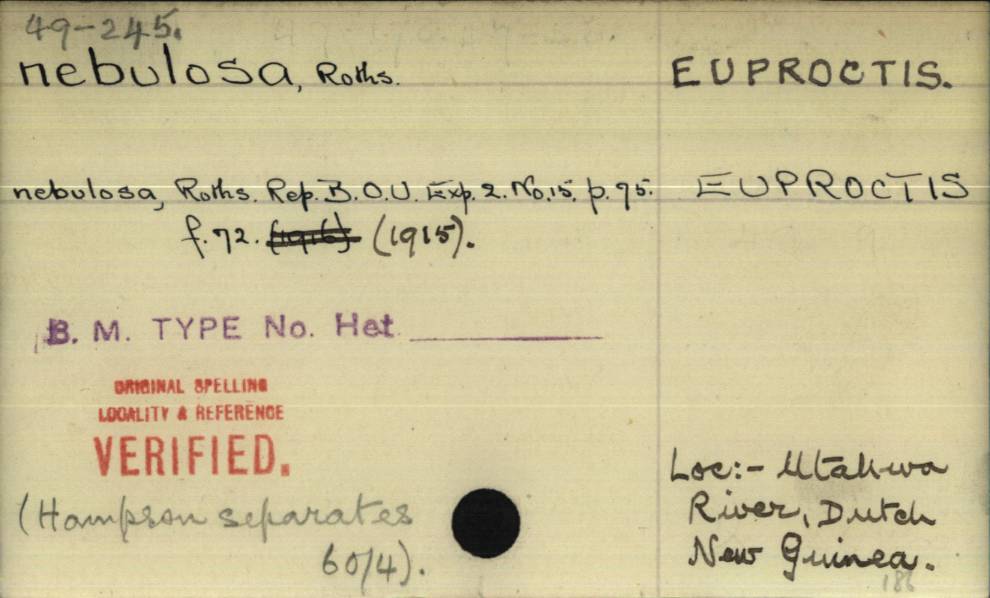 49-245.
nebulosa, Roths. EUPROCTIS.
nebulosa, Roths. Rep. B.O.U. Exp. 2. No. 15. p. 75. EUPROCTIS
f. 72. (1916) (1915).
B. M. TYPE No. Het
ORIGINAL SPELLING
LOCALITY & REFERENCE
VERIFIED.
(Hampson separates
60/4).
Loc:- Utakwa
River, Dutch
New Guinea.
186